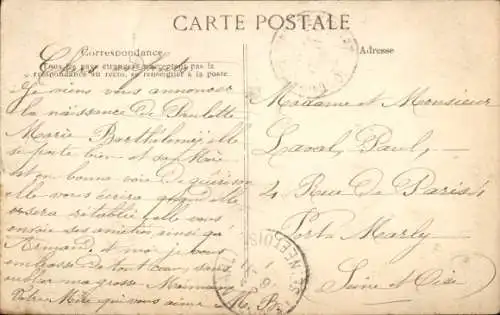 CARTE POSTALE
Correspondance
Tous les pays étrangers n'acceptent pas la
correspondance au recto, se renseigner à la poste
Adresse
Je viens vous annoncer
la naissance de Paulette
Marie Barthélemy, elle
se porte bien et sa Mère
est en bonne voie de guérison
elle vous écrira quand elle
sera rétablie elle vous
envoie ses amitiés ainsi qu'
Armand, et moi je vous
embrasse de tout cœur sans
oublier ma grosse
Votre qui vous aime M. B.
Madame et Monsieur
Laval Paul,
4 Rue de Paris 4
Port Marly
Seine et Oise